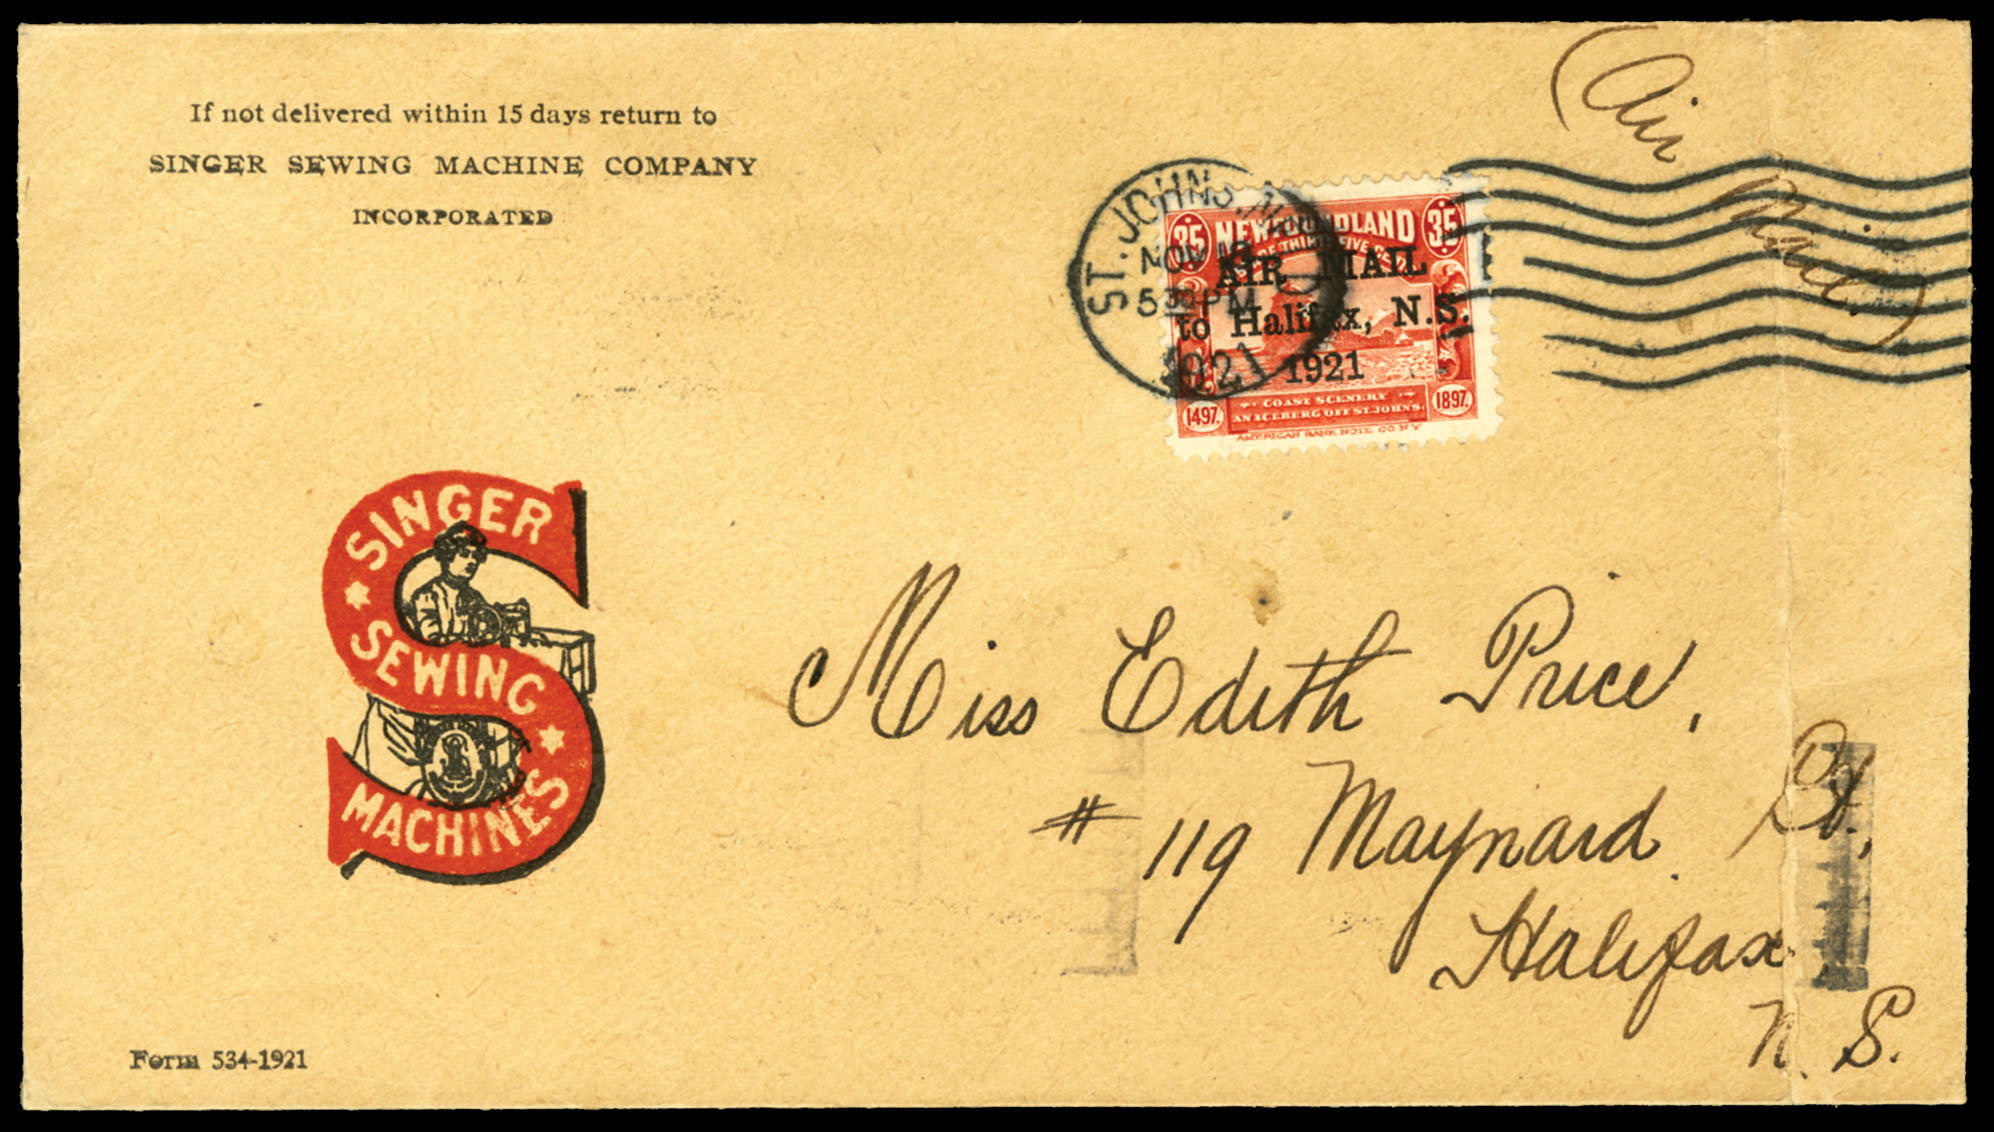 If not delivered within 15 days return to
SINGER SEWING MACHINE COMPANY
INCORPORATED
(Air Mail.)
ST. JOHNS, N
NOV
5 30 PM
1921
35 NEWFOUNDLAND 35
AIR MAIL
to Halifax, N.S.
1921
1497. COAST SCENERY 1897.
AN ICEBERG OFF ST. JOHNS.
AMERICAN BANK NOTE CO. N.Y.
SINGER
SEWING
MACHINES
Miss Edith Price,
# 119 Maynard St.,
Halifax
N. S.
Form 534-1921